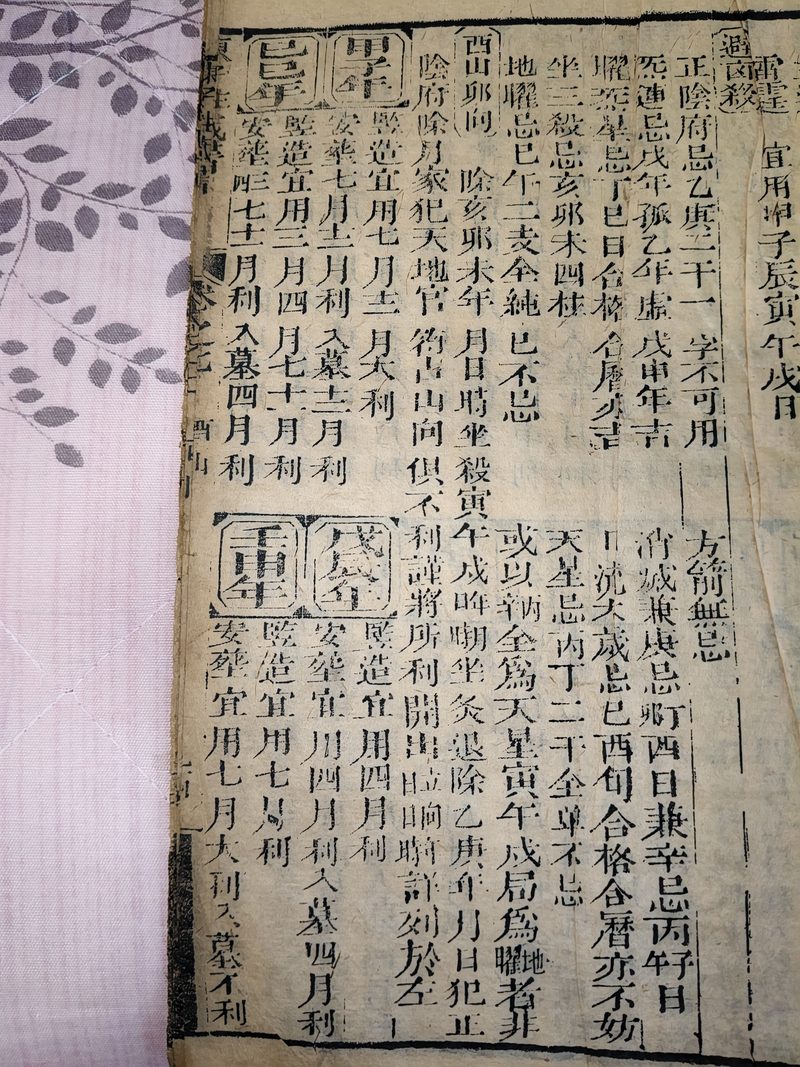 雷霆 宜用坤子辰寅午戌日
避凶殺 方箭無忌
正陰府忌乙庚二干一字不可用 消滅兼庚忌 酉日兼辛忌丙子午日
炁連忌戊年孤乙年虛戊申年吉 流太歲忌巳酉旬合格合曆亦不妨
曜炁星忌丁巳日合格合曆亦吉 天星忌丙丁二干全單不忌
坐三殺忌亥卯未四柱 或以 全為天星寅午戌局為地曜者非
地曜忌巳午二支全純巳不忌
酉山卯向 除亥卯未年月日時坐殺寅午戌年 坐灸退除乙庚年月日犯正
陰府除月家犯天地官符占山向俱不利謹將所利開出 時詳列於左
甲子年 豎造宜用七月十二月大利
安塟七月十二月利入墓十二月利
戊辰年 豎造宜用四月利
安塟宜用四月利入墓四月利
己巳年 豎造宜用三月四月七十一月利
安塟 七十一月利入墓四月利
壬申年 豎造宜用七月利
安塟宜用七月大利入墓不利
卷之 酉山